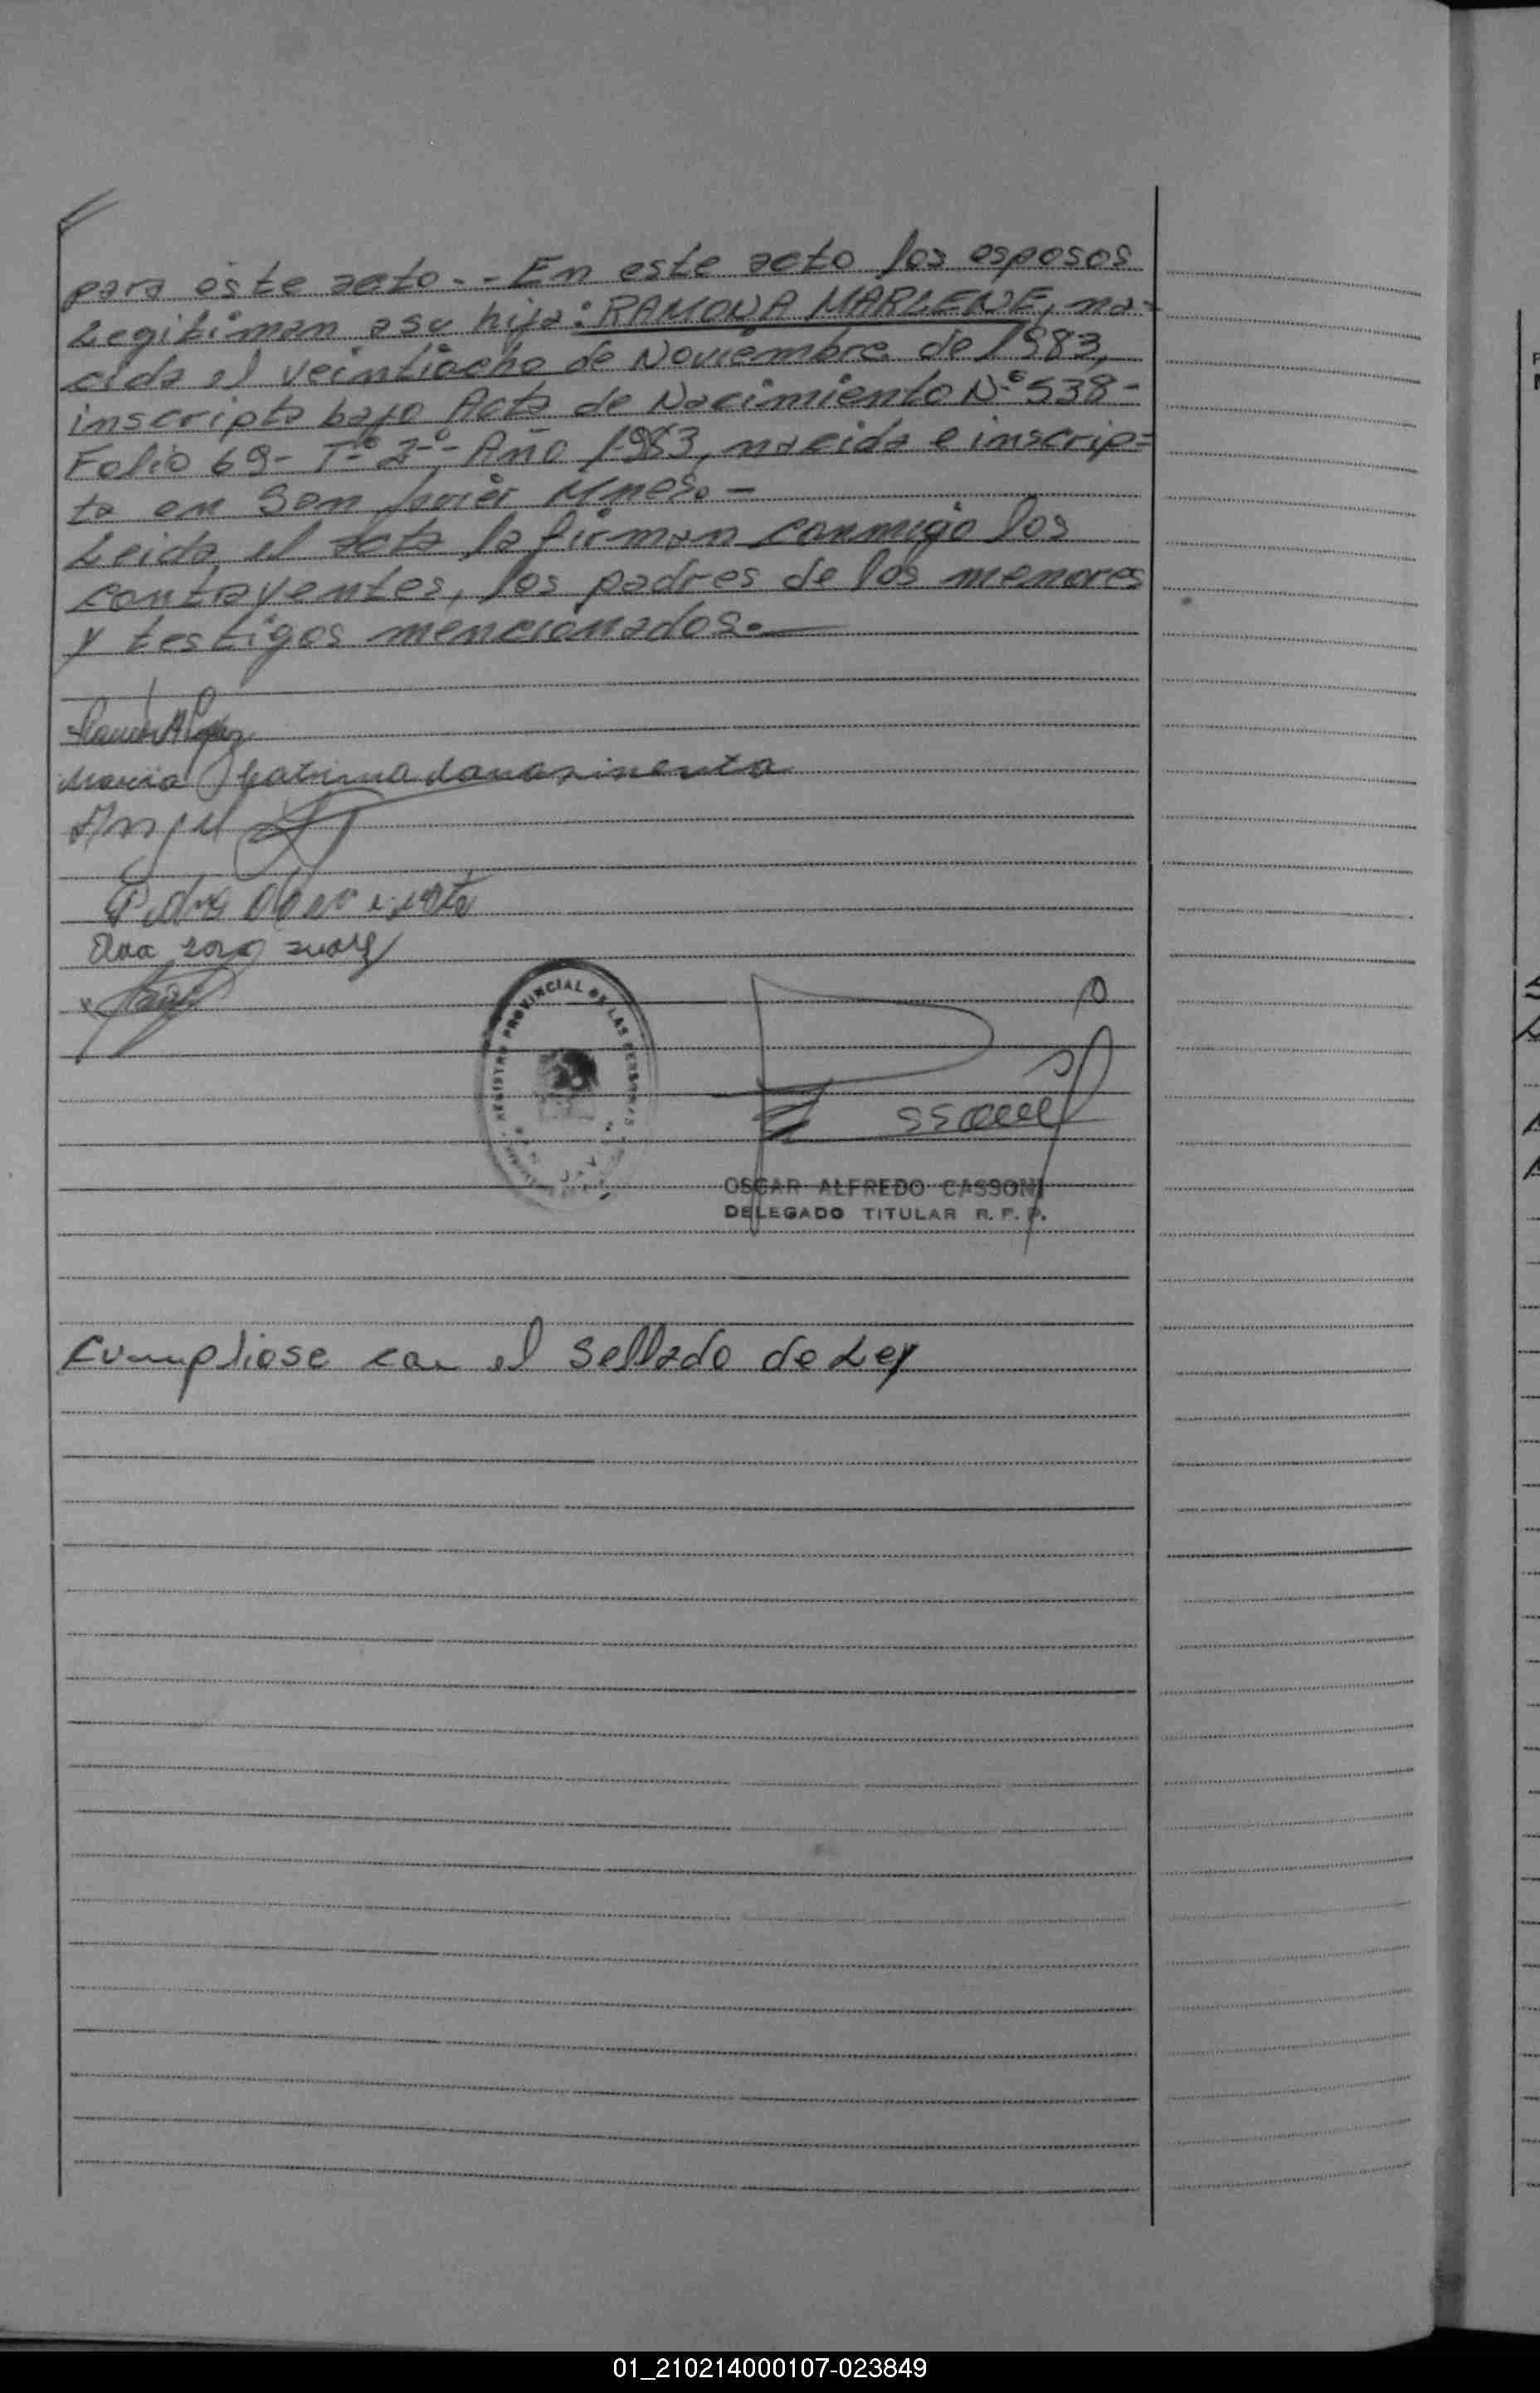 para éste acto.- En este acto los esposos
Legitiman a su hija: RAMONA MARLENE, na-
cida el veintiocho de Noviembre de 1983,
inscripta bajo Acta de Nacimiento Nº 538-
Folio 69- Tº 2º- Año 1983, nacida e inscrip-
ta en San Javier Mnes.-
Leida el acta la firman conmigo los
contrayentes, los padres de los menores
y testigos mencionados.-
Ramón A
Maria
Angel
Pedro
Ana
REGISTRO PROVINCIAL DE LAS PERSONAS
OSCAR ALFREDO CASSONI
DELEGADO TITULAR R. P. P.
Cumpliose con el Sellado de Ley
01_210214000107-023849